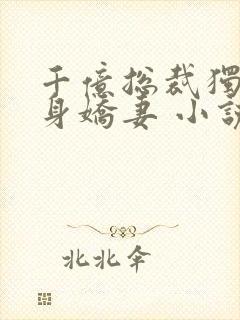 千億総裁獨
身嬌妻 小說
北北傘